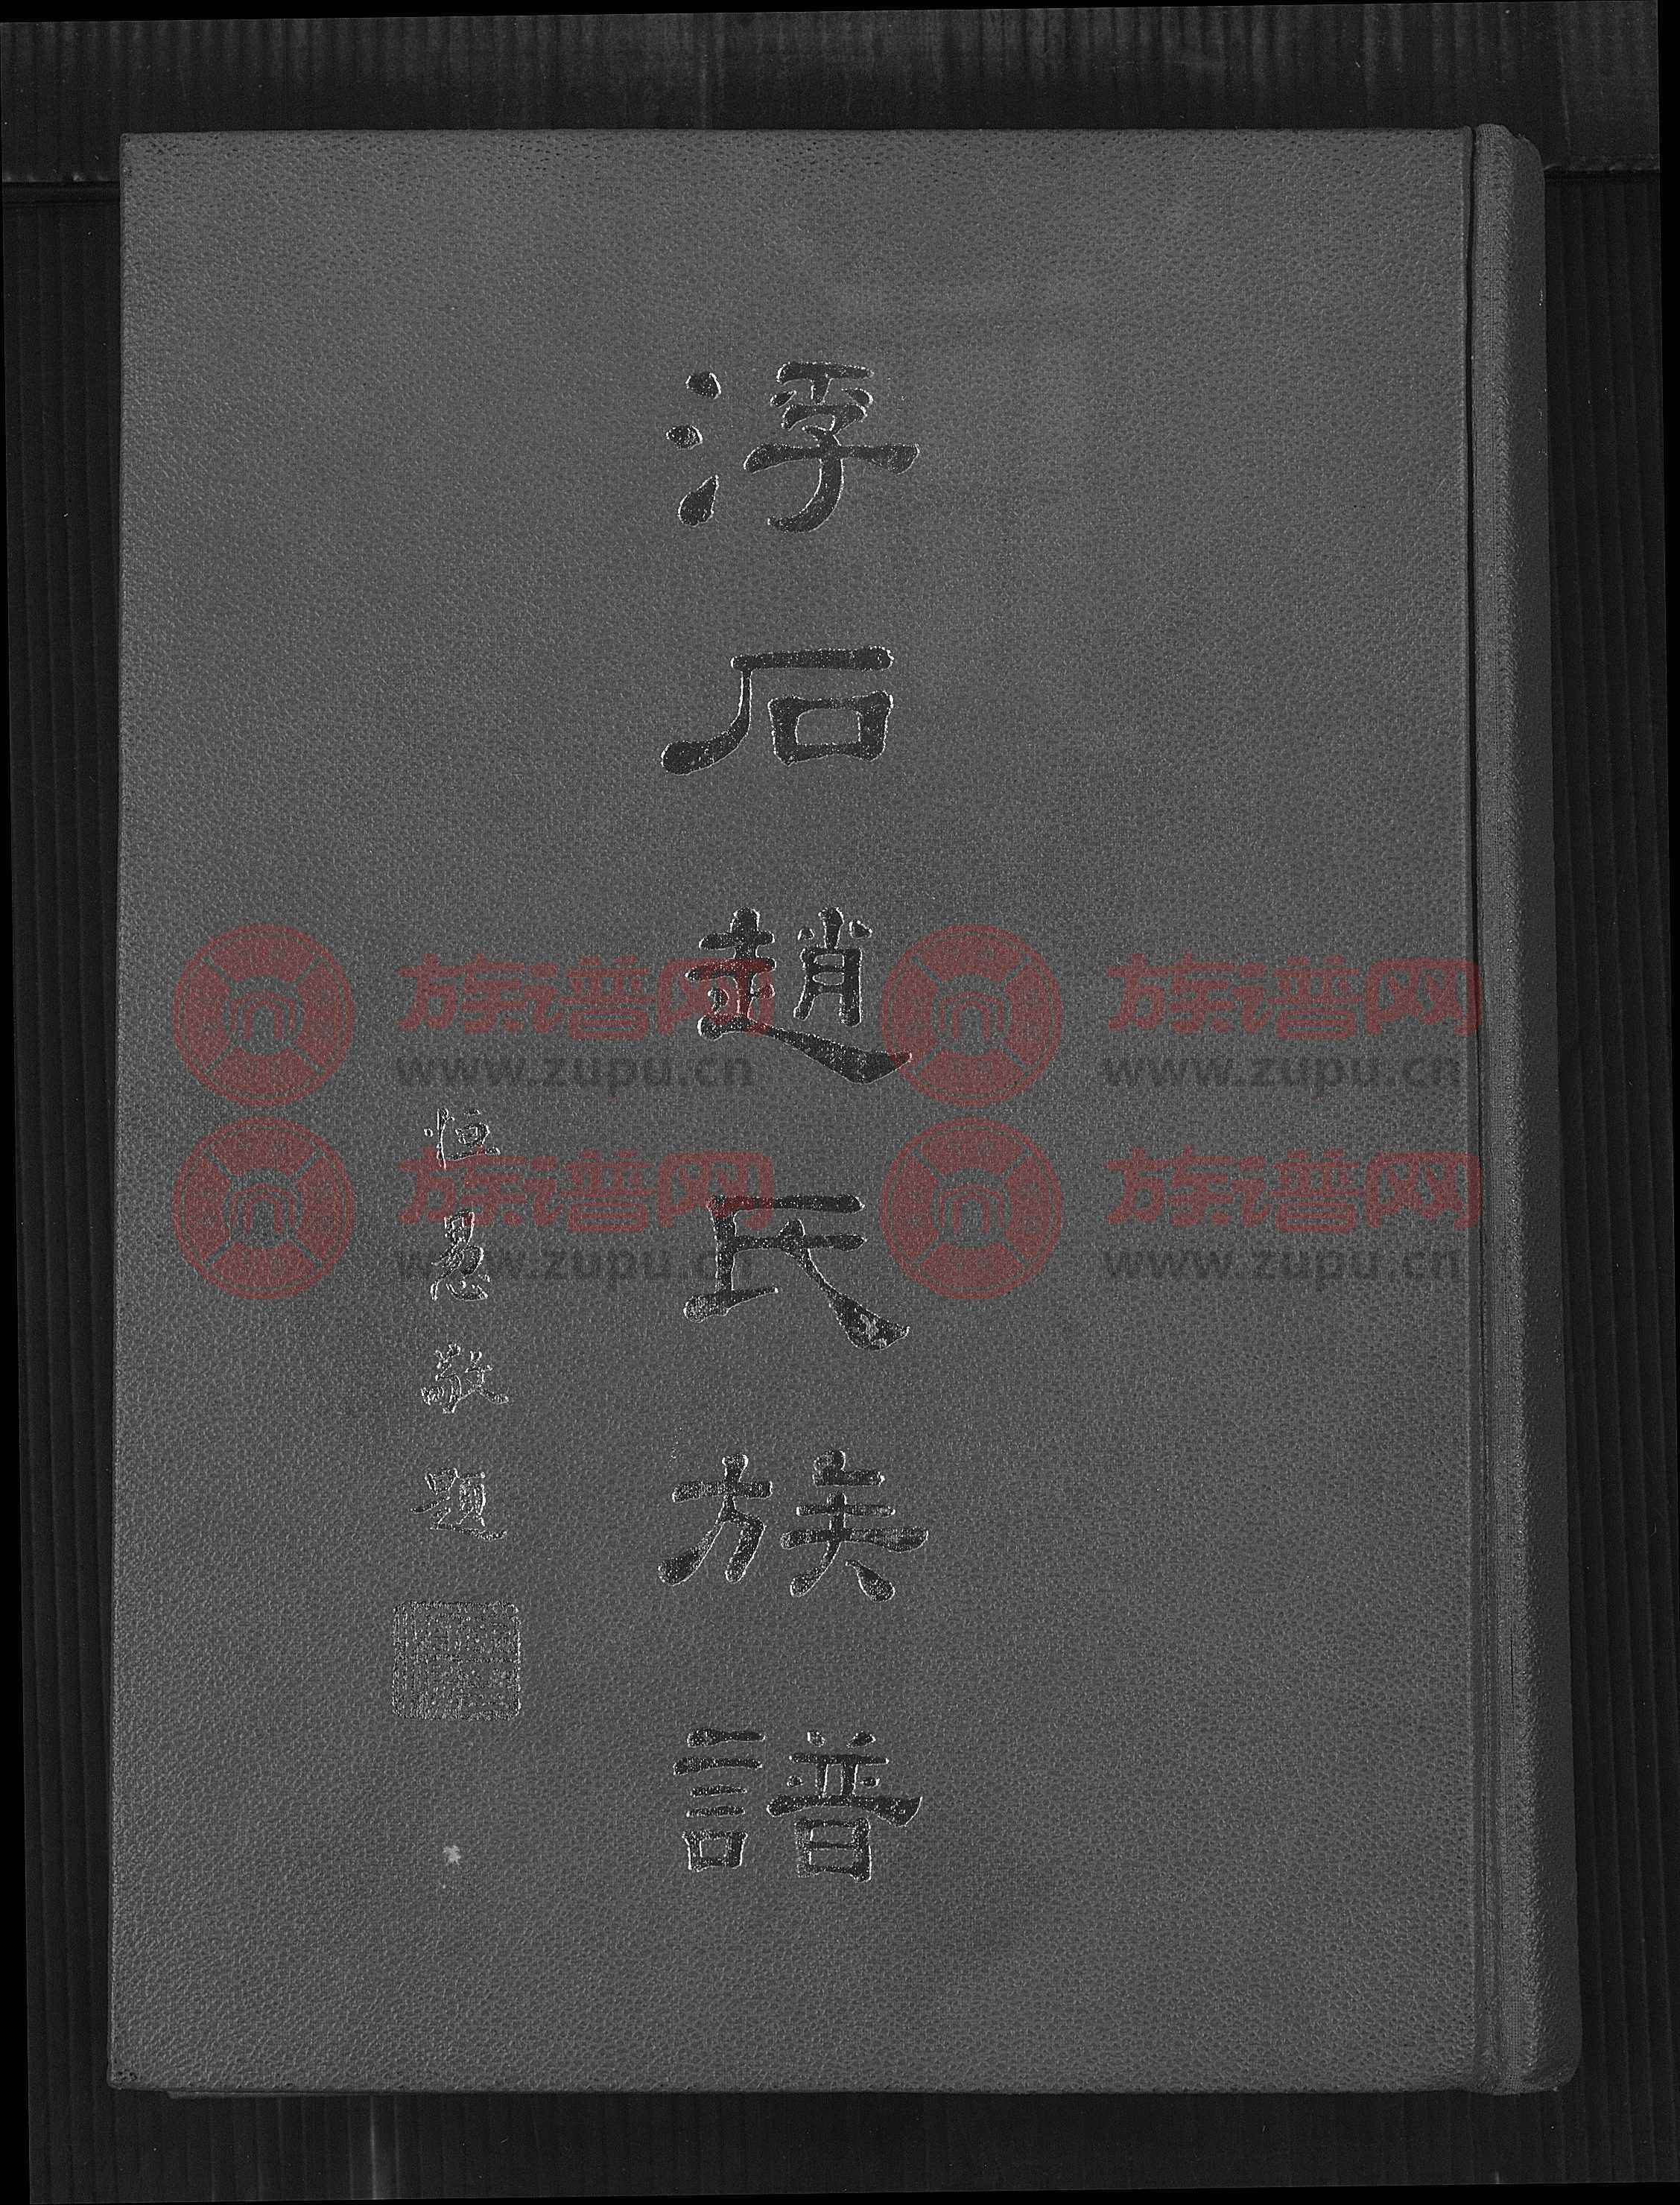 浮石趙氏族譜
恒愚敬題
族谱网 族谱网
www.zupu.cn www.zupu.cn
族谱网 族谱网
www.zupu.cn www.zupu.cn